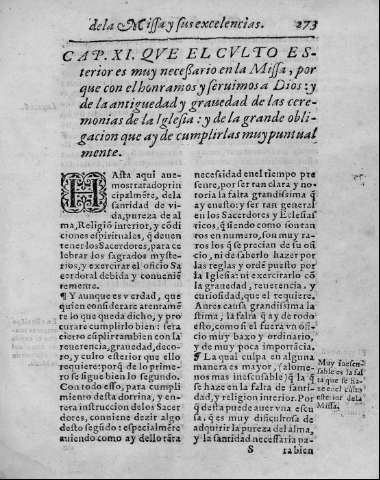 de la Missa y sus excelencias. 273
CAP. XI. QVE EL CVLTO ES-
terior es muy necessario en la Missa, por
que con el honramos y seruimos a Dios: y
de la antiguedad y grauedad de las cere-
monias de la Iglesia: y de la grande obli-
gacion que ay de cumplirlas muy puntual
mente.
HAsta aqui aue-
mostratado prin
cipalmẽte, dela
santidad de vi-
da, pureza de al
ma, Religiõ interior, y cõdi
ciones espirituales, q̃ deuen
tener los Sacerdotes, para ce
lebrar los sagrados myste-
rios, y exercitar el oficio Sa
cerdotal debida y conueniẽ
temente.
¶ Y aunque es verdad, que
quien considerare atentamẽ
te lo que queda dicho, y pro
curare cumplirlo bien: sera
cierto cũplir tambien con la
reuerencia, grauedad, deco-
ro, y culto esterior que ello
requiere: porq̃ de lo prime-
ro se sigue bien lo segundo.
Con todo esso, para cumpli
miento desta dotrina, y en-
tera instruccion de los Sacer
dotes, conuiene dezir algo
desto segũdo: especialmẽte
auiendo como ay dello tãta
necessidad en el tiempo pre
sente, por ser tan clara y no-
toria la falta grandissima q̃
ay en esto: y ser tan general
en los Sacerdotes y Eclesias
ticos, q̃ siendo como son tan
tos en numero, son muy ra-
ros los q̃ se precian de su ofi
cio, ni de saberlo hazer por
las reglas y ordẽ puesto por
la Iglesia: ni exercitarlo cõ
la grauedad, reuerencia, y
curiosidad, que el requiere.
Antes causa grandissima la
stima, la falta q̃ ay de rodo
esto, como si el fuera vn ofi-
cio muy baxo y ordinario,
y de muy poca importãcia.
¶ La qual culpa en alguna
manera es mayor, salomé-
nos mas inescusable) q̃ la q̃
se haze en la falta de santi-
dad, y religion interior. Por q̃
desta puede auer vna escu
sa, q̃s es muy dificultosa de
adquirir la pureza del alma,
y la santidad necessaria pa-
Muy inescu-
sable es la fal
ta que se ha-
ze en el culto
esterior de la
Missa.
S ra bien